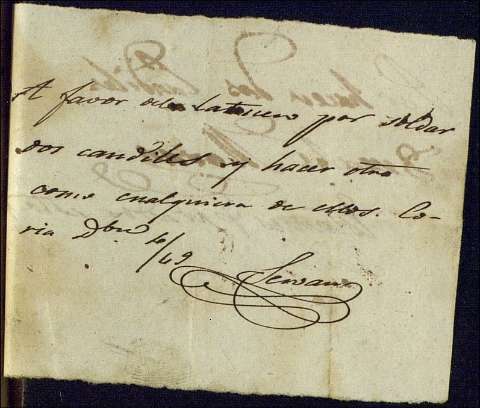 A favor del Latonero por soldar
dos candiles y hacer otro
como cualquiera de ellos. Co-
ria Dbre /49